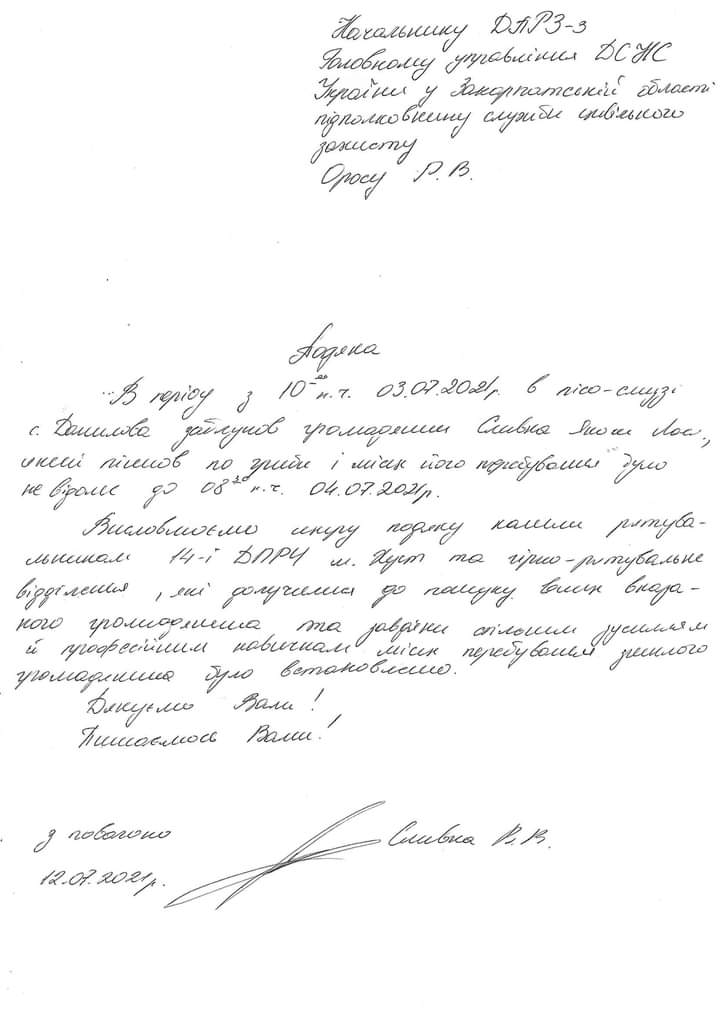 Начальнику ДПРЗ-3
Головному управління ДСНС
України у Закарпатській області
підполковнику служби цивільного
захисту
Оросу Р. В.
Подяка
В період з 10-00 н.ч. 03.07.2021р. в лісо-смузі
с. Данилова заблукав громадянин Сливка
який пішов по гриби і місце його перебування було
не відоме до 08 н.ч. 04.07.2021р.
Висловлюємо щиру подяку нашим рятува-
льникам 14-ї ДПРЧ м. Хуст та гірно-рятувальне
відділення, які долучився до пошуку вказа-
ного громадянина та завдяки спільним зусиллям
й професійним навичкам місце перебування зниклого
громадянина було встановлено.
Дякуємо Вам!
Пишаємось Вами!
З повагою Сливка В. В.
12.07.2021р.